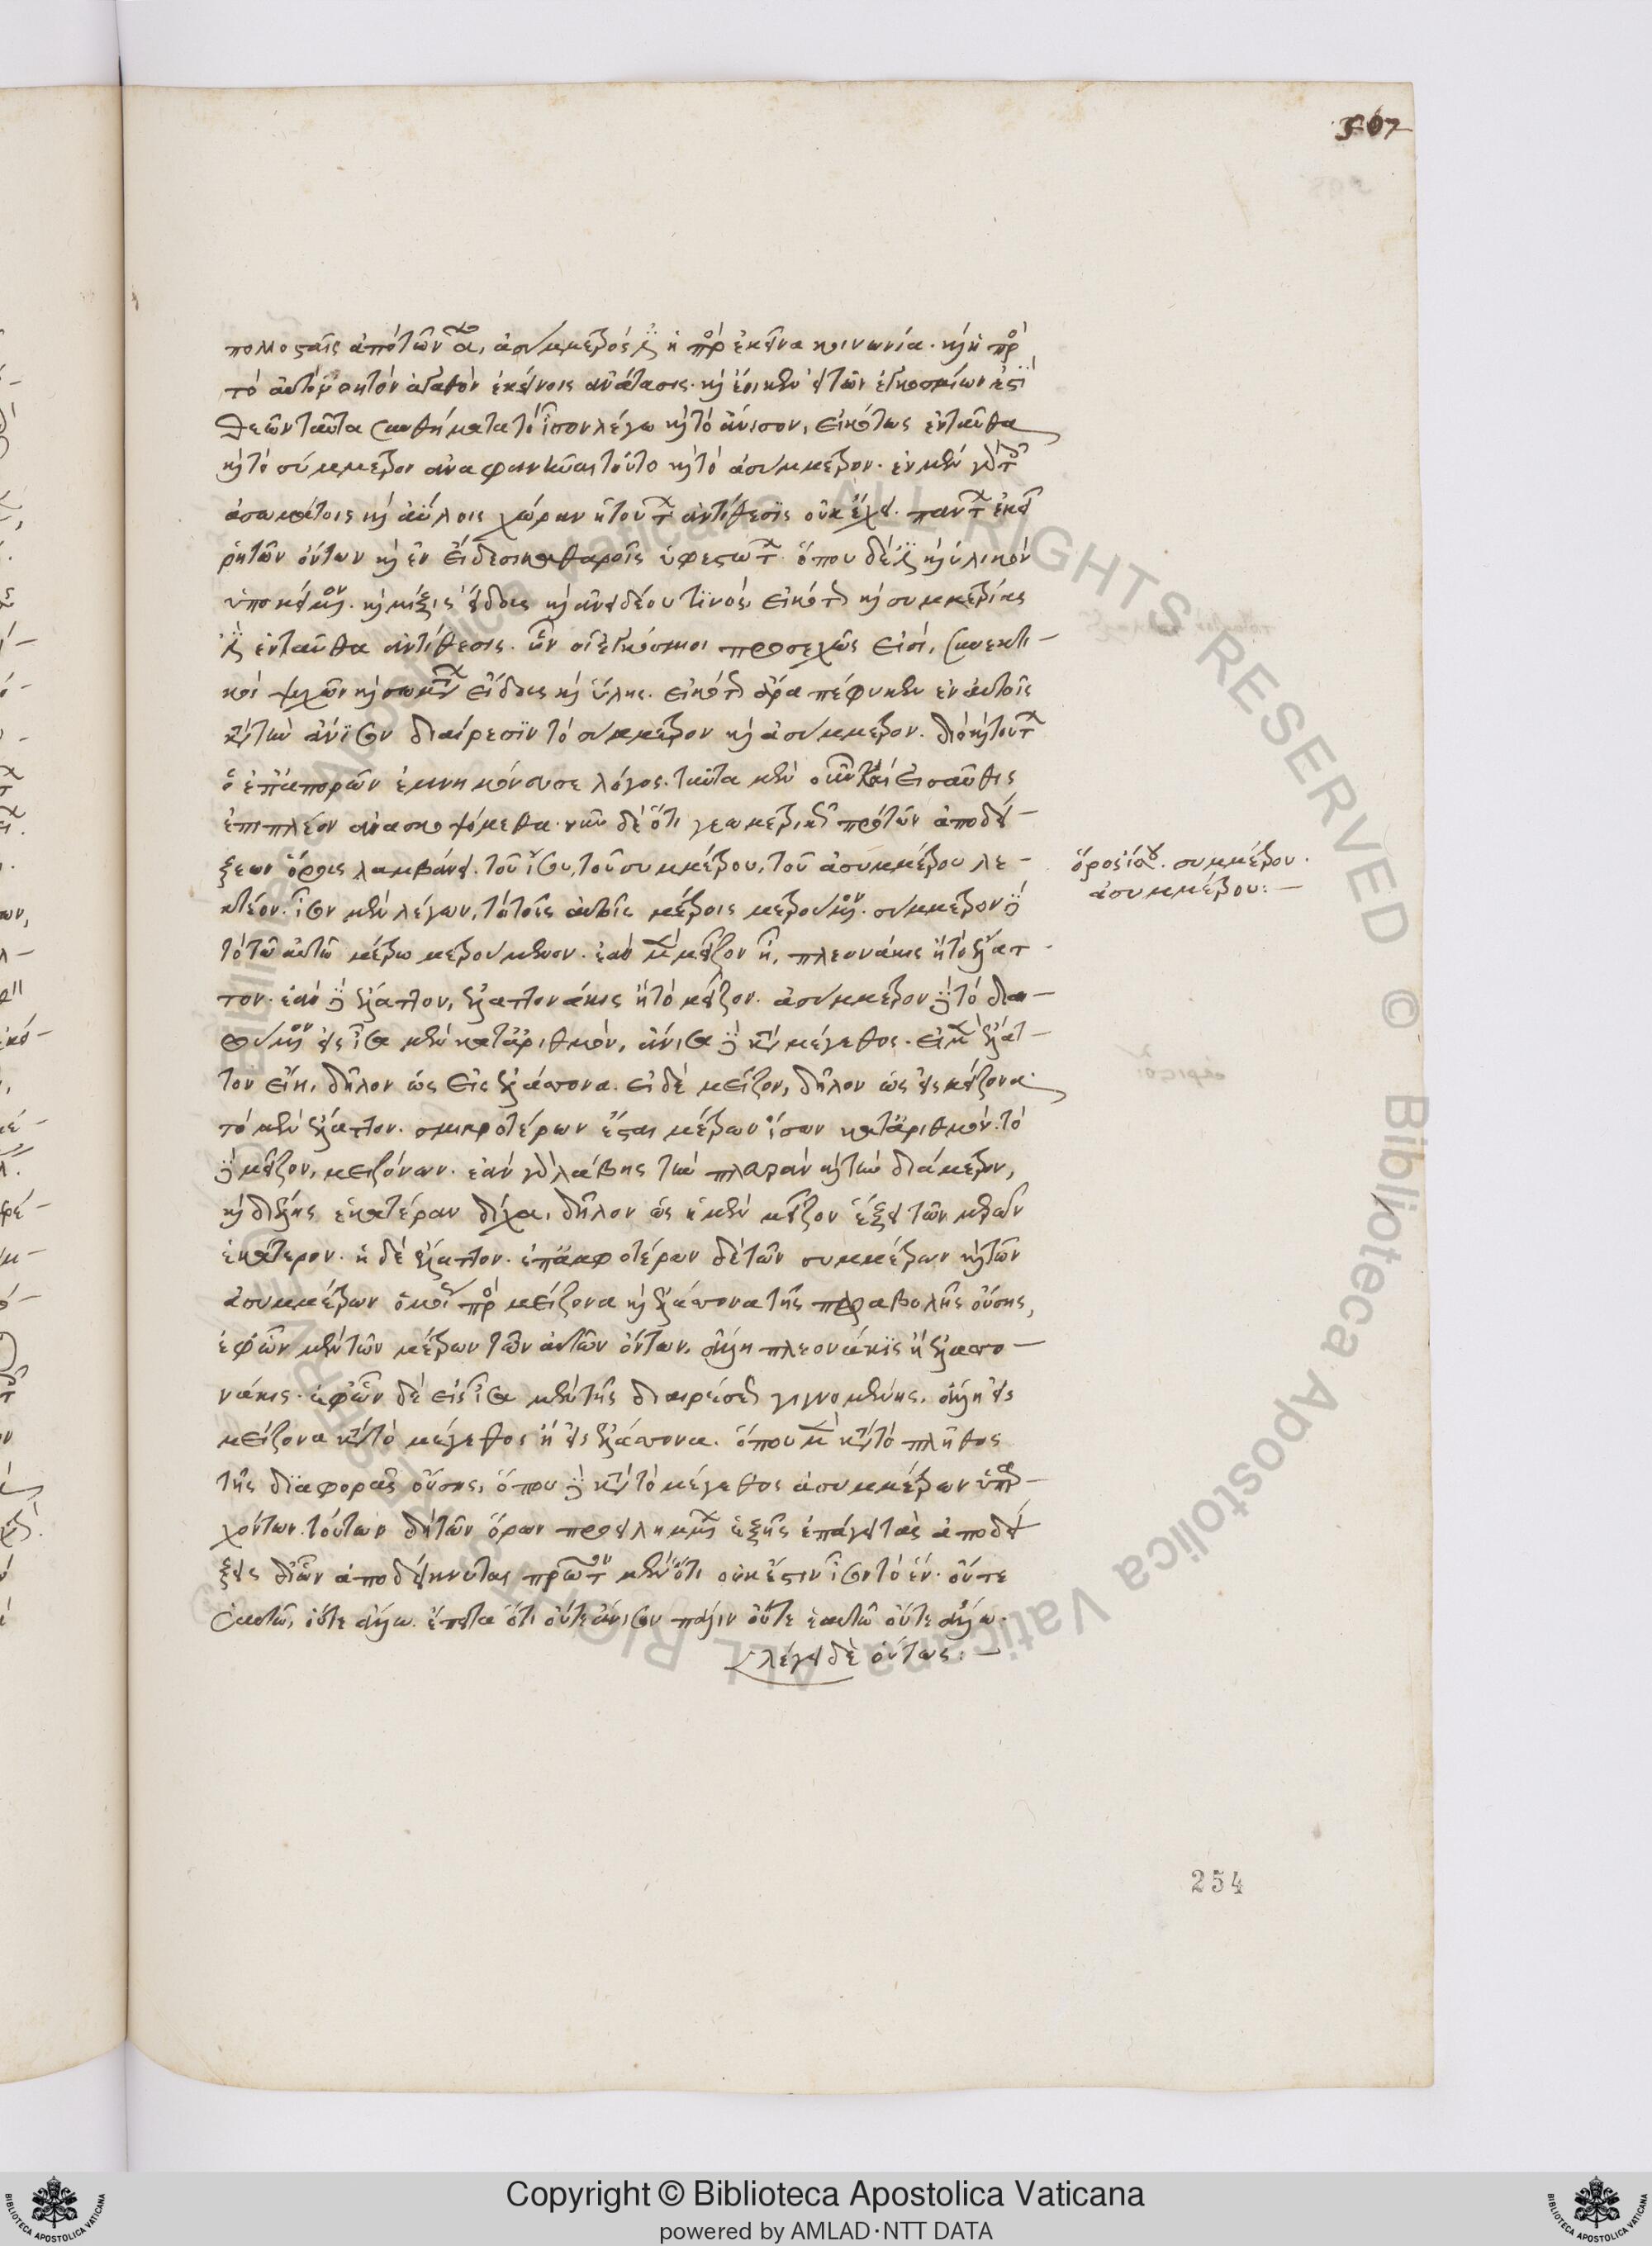 507
πολλοσταῖς ἀπὸ τῶν α, ἀσύμμετρός ἐστιν ἡ πρὸς ἐκεῖνα κοινωνία. καὶ ἡ πρὸς
τὸ αὐτὸ ῥητὸν ἀγαθὸν ἐκείνοις ἀνάτασις. καὶ ἔοικεν ἐπεὶ τῶν ἐγκοσμίων ἐστὶ
θεῶν ταῦτα συνθήματα τὸ ἴσον λέγω καὶ τὸ ἄνισον, εἰκότως ἐνταῦθα
καὶ τὸ σύμμετρον ἀναφαίνεται τοῦτο καὶ τὸ ἀσύμμετρον. ἐν μὲν γὰρ τοῖς
ἀσωμάτοις καὶ ἀΰλοις χώραν ἡ τούτων ἀντίθεσις οὐκ ἔχει. πάντων ἐκεῖ
ῥητῶν ὄντων καὶ ἐν εἴδεσι καθαροῖς ὑφεστώτων. ὅπου δέ ἐστι καὶ ὑλικὸν
ὑποκείμενον. καὶ μίξις εἴδους καὶ ἀνειδέου τινός, εἰκότως καὶ συμμετρίας
ἐστὶν ἐνταῦθα ἀντίθεσις. ὧν οἱ ἐγκόσμιοι προσεχῶς εἰσί, συνεκτι-
κοὶ ψυχῶν καὶ σωμάτων εἴδους καὶ ὕλης. εἰκότως ἄρα πέφυκεν ἐν αὐτοῖς
κατὰ τὴν ἄνισον διαίρεσιν τὸ σύμμετρον καὶ ἀσύμμετρον. διὸ καὶ τούτων
ὁ ἐπ' ἀπορῶν ἐμνημόνευσε λόγος. ταῦτα μὲν οὖν καὶ εἰσαῦθις
ἐπιπλέον ἀνασκεψόμεθα. νῦν δὲ ὅτι γεωμετρικῶς πρὸ τῶν ἀποδεί-
ξεων ὅρους λαμβάνει. τοῦ ἴσου, τοῦ συμμέτρου, τοῦ ἀσυμμέτρου λε-
κτέον. ἴσον μὲν λέγων, τὸ τοῖς αὐτοῖς μέτροις μετρούμενον. σύμμετρον δὲ
τὸ τῶ αὐτῶ μέτρω μετρούμενον. ἐὰν μὲν μεῖζον ᾖ, πλεονάκις ἢ τὸ ἔλατ-
τον. ἐὰν δὲ ἔλαττον, ἐλαττονάκις ἢ τὸ μεῖζον. ἀσύμμετρον δὲ τὸ διαι-
ρούμενον εἰς ἴσα μὲν κατ' ἀριθμόν, ἄνισα δὲ κατὰ μέγεθος. εἰ μὲν ἔλατ-
τον εἴη, δῆλον ὡς εἰς ἐλάττονα. εἰ δὲ μεῖζον, δῆλον ὡς εἰς μείζονα.
τὸ μὲν ἔλαττον. σμικροτέρων ἔσται μέτρων ἴσων κατ' ἀριθμόν. τὸ
δὲ μεῖζον, μειζόνων. ἐὰν γὰρ λάβης τὴν πλευρὰν καὶ τὴν διάμετρον,
καὶ διέλης ἑκατέραν δίχα, δῆλον ὡς ἡ μὲν μεῖζον ἕξει τῶν μερῶν
ἑκάτερον. ἡ δὲ ἔλαττον. ἐπ' ἀμφοτέρων δὲ τῶν συμμέτρων καὶ τῶν
ἀσυμμέτρων ὁμοῦ πρὸς μείζονα καὶ ἐλάττονα τῆς παραβολῆς οὔσης,
ἐφ' ὧν μὲν τῶν μέτρων τῶν αὐτῶν ὄντων, ἀλλ' ἢ πλεονάκις ἢ ἐλαττο-
νάκις. ἐφ' ὧν δὲ εἰς ἴσα μὲν τῆς διαιρέσεως γιγνομένης. ἀλλ' ἢ εἰς
μείζονα κατὰ τὸ μέγεθος ἢ εἰς ἐλάττονα. ὅπου μὲν κατὰ τὸ πλῆθος
τῆς διαφορᾶς οὔσης, ὅπου δὲ κατὰ τὸ μέγεθος ἀσυμμέτρων ὑπαρ-
χόντων. τούτων δὴ τῶν ὅρων προειλημμένων ἑξῆς ἐπάγει τὰς ἀποδεί-
ξεις δι' ὧν ἀποδείκνυται πρῶτον μὲν ὅτι οὐκ ἔστιν ἴσον τὸ ἕν. οὔτε
ἑαυτῶ, οὔτε ἄλλω. ἔπειτα ὅτι οὔτε ἄνισον πάλιν οὔτε ἑαυτῶ οὔτε ἄλλω.
λέγει δὲ οὕτως: —
ὅρος ἴσου. συμμέτρου.
ἀσυμμέτρου: —
254
Copyright © Biblioteca Apostolica Vaticana
powered by AMLAD·NTT DATA